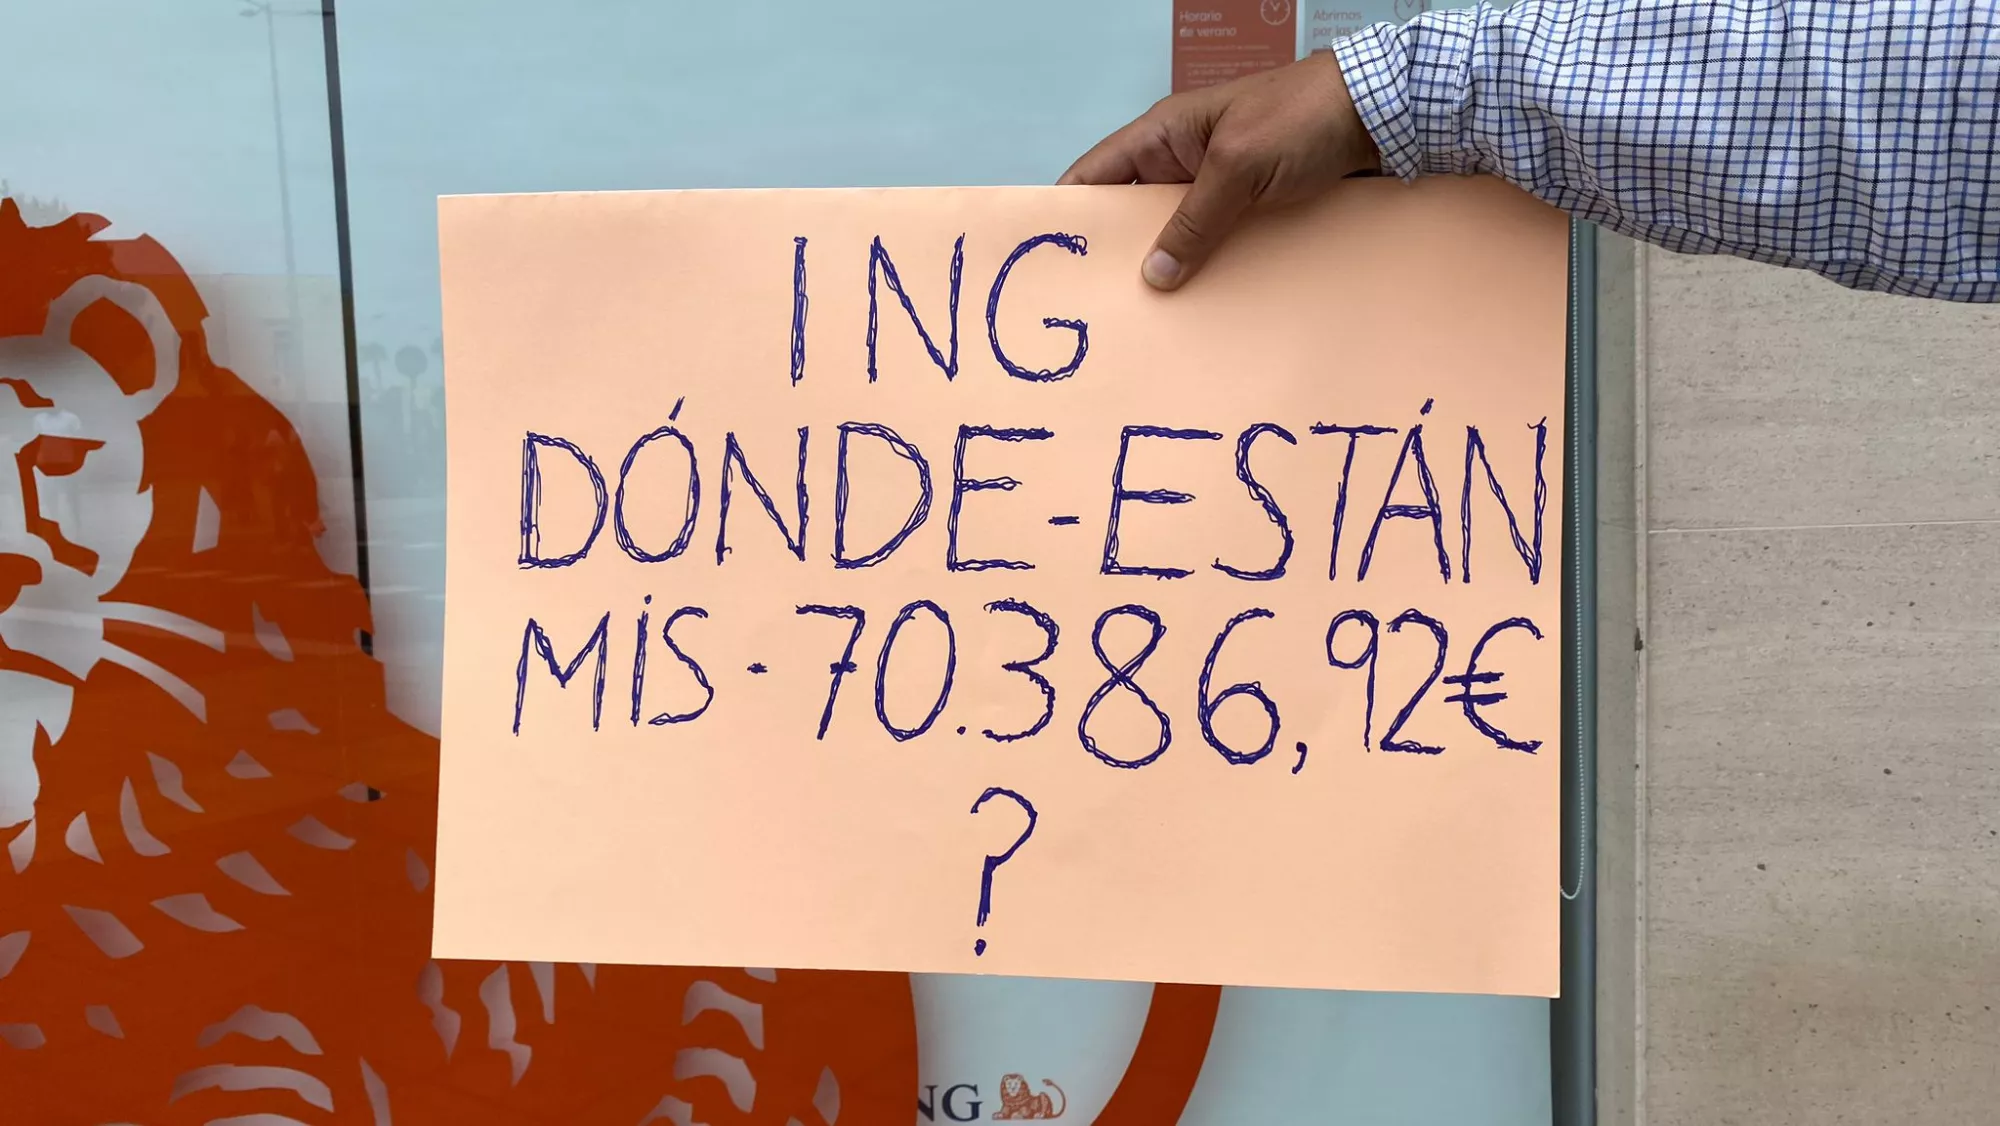 Horario
de verano
Abrimos
por las
ING
DÓNDE-ESTÁN
MIS-70.386,92€
?
NG